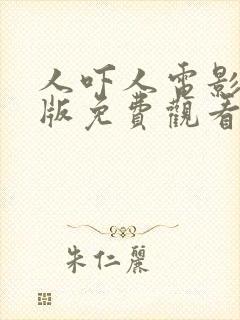 人吓人電影
版免費觀看
朱仁麗